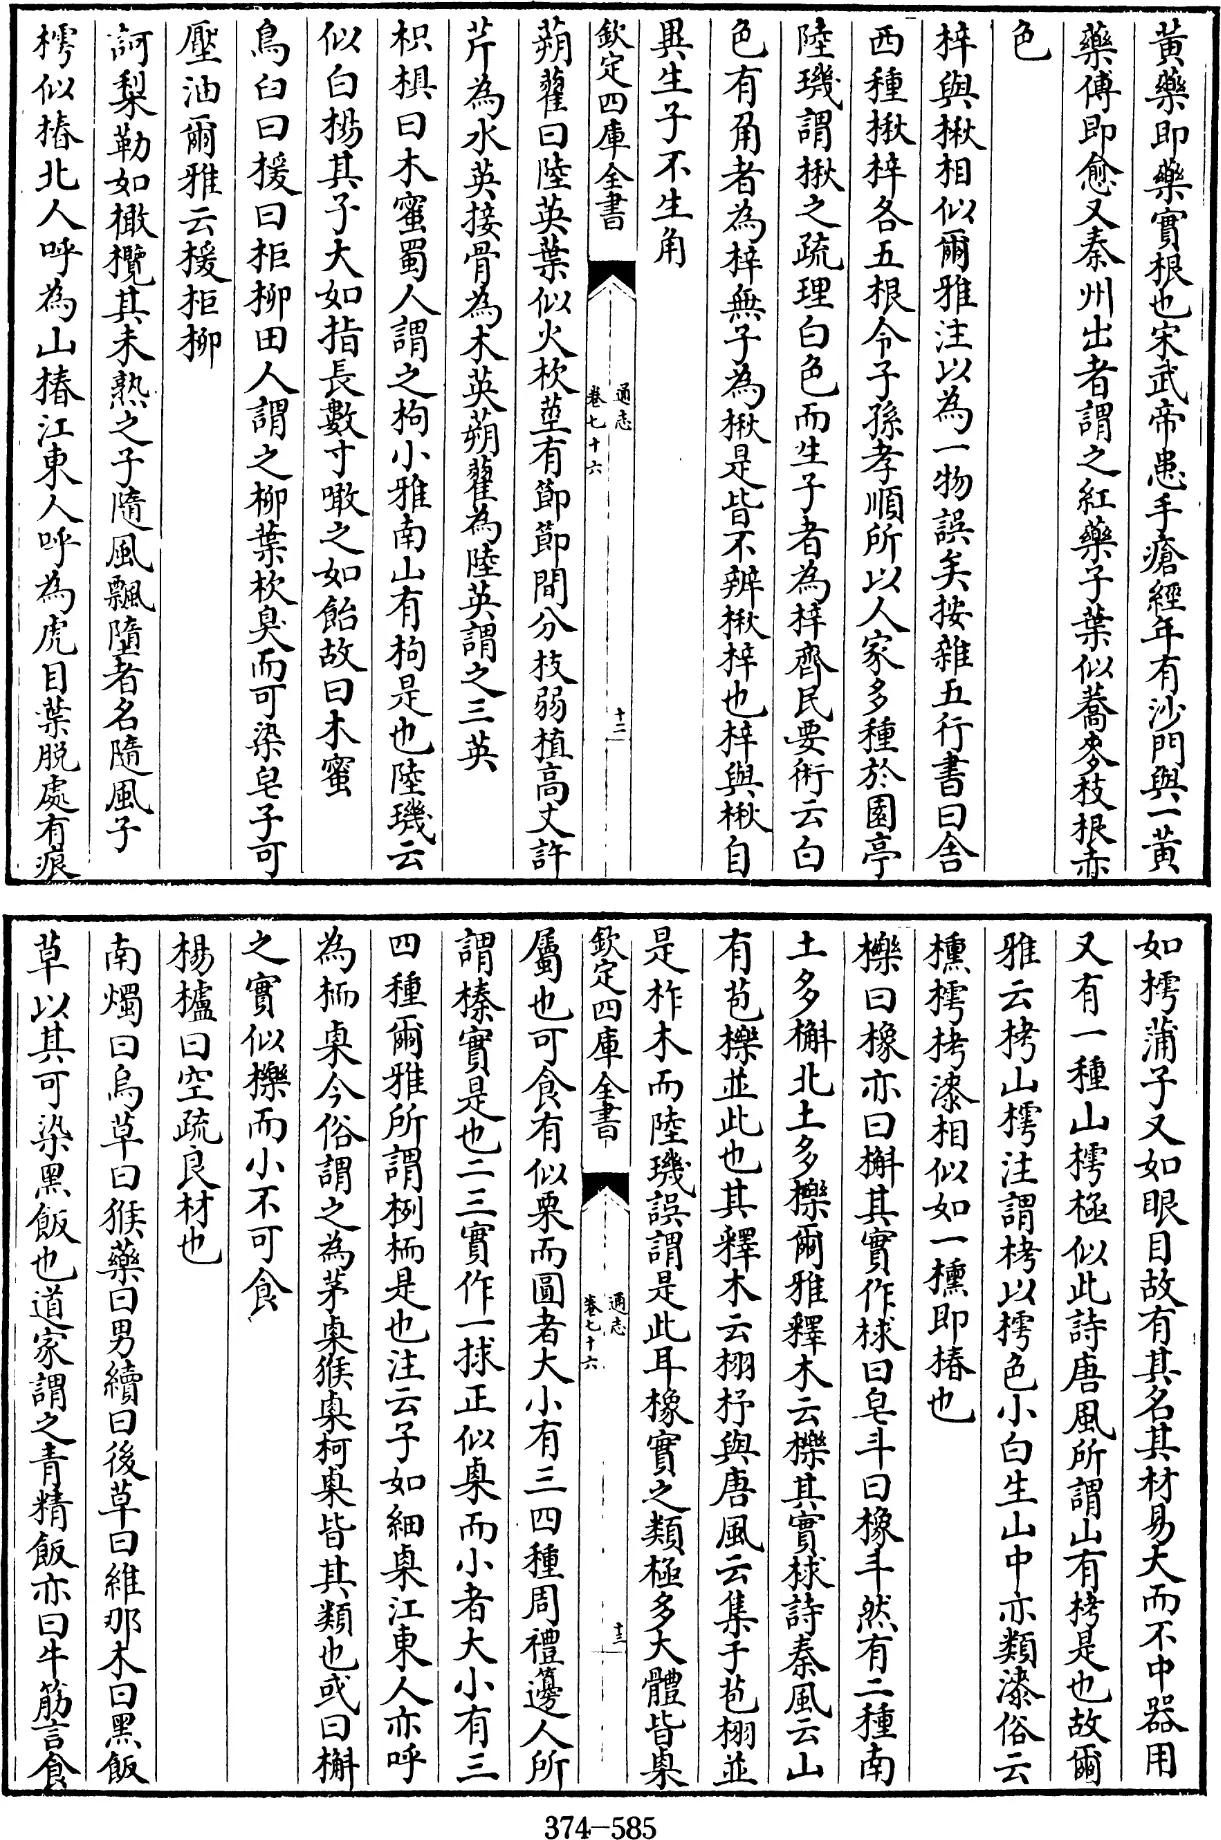 黃藥即藥實根也宋武帝患手瘡經年有沙門與一黃
藥傅即愈又秦州出者謂之紅藥子葉似蕎麥枝根赤
色
梓與楸相似爾雅注以為一物誤矣按雜五行書曰舍
西種楸梓各五根令子孫孝順所以人家多種於園亭
陸璣謂楸之疏理白色而生子者為梓齊民要術云白
色有角者為梓無子為楸是皆不辨楸梓也梓與楸自
異生子不生角
欽定四庫全書
通志
卷七十六
十二
蒴藋曰陸英葉似火杴莖有節節間分枝弱植高丈許
芹為水英接骨為木英蒴藋為陸英謂之三英
枳椇曰木蜜蜀人謂之枸小雅南山有枸是也陸璣云
似白楊其子大如指長數寸噉之如飴故曰木蜜
烏臼曰援曰柜柳田人謂之柳葉杴臭而可染皂子可
壓油爾雅云楥柜柳
訶梨勒如橄欖其未熟之子隨風飄墮者名隨風子
樗似椿北人呼為山椿江東人呼為虎目葉脫處有痕
如樗蒲子又如眼目故有其名其材易大而不中器用
又有一種山樗極似此詩唐風所謂山有栲是也故爾
雅云栲山樗注謂栲以樗色小白生山中亦類漆俗云
櫄樗栲漆相似如一櫄即椿也
櫟曰橡亦曰槲其實作梂曰皂斗曰橡斗然有二種南
土多槲北土多櫟爾雅釋木云櫟其實梂詩秦風云山
有苞櫟並此也其釋木云栩杼與唐風云集于苞栩並
是柞木而陸璣誤謂是此耳橡實之類極多大體皆㮚
欽定四庫全書
通志
卷七十六
十三
屬也可食有似栗而圓者大小有三四種周禮籩人所
謂榛實是也二三實作一捄正似㮚而小者大小有三
四種爾雅所謂栵栭是也注云子如細㮚江東人亦呼
為栭㮚今俗謂之為茅㮚猴㮚柯㮚皆其類也或曰槲
之實似櫟而小不可食
楊櫨曰空疏良材也
南燭曰烏草曰猴藥曰男續曰後草曰維那木曰黑飯
草以其可染黑飯也道家謂之青精飯亦曰牛筋言食
374-585